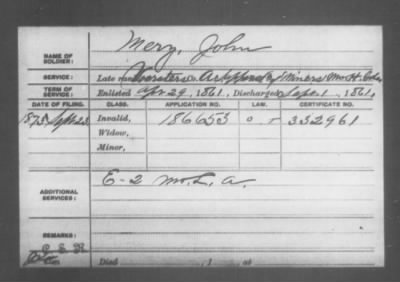 NAME OF SOLDIER: Merz, John
SERVICE: Late Miners Mo. H.
TERM OF SERVICE: Enlisted Apr 29, 1861, Discharged Sept. 1, 1861,
DATE OF FILING. CLASS. APPLICATION NO. LAW. CERTIFICATE NO.
1873, Invalid, 186653 332961
Widow,
Minor,
ADDITIONAL SERVICES: E-2 Mo. L. A.
REMARKS:
Died , 1 , at